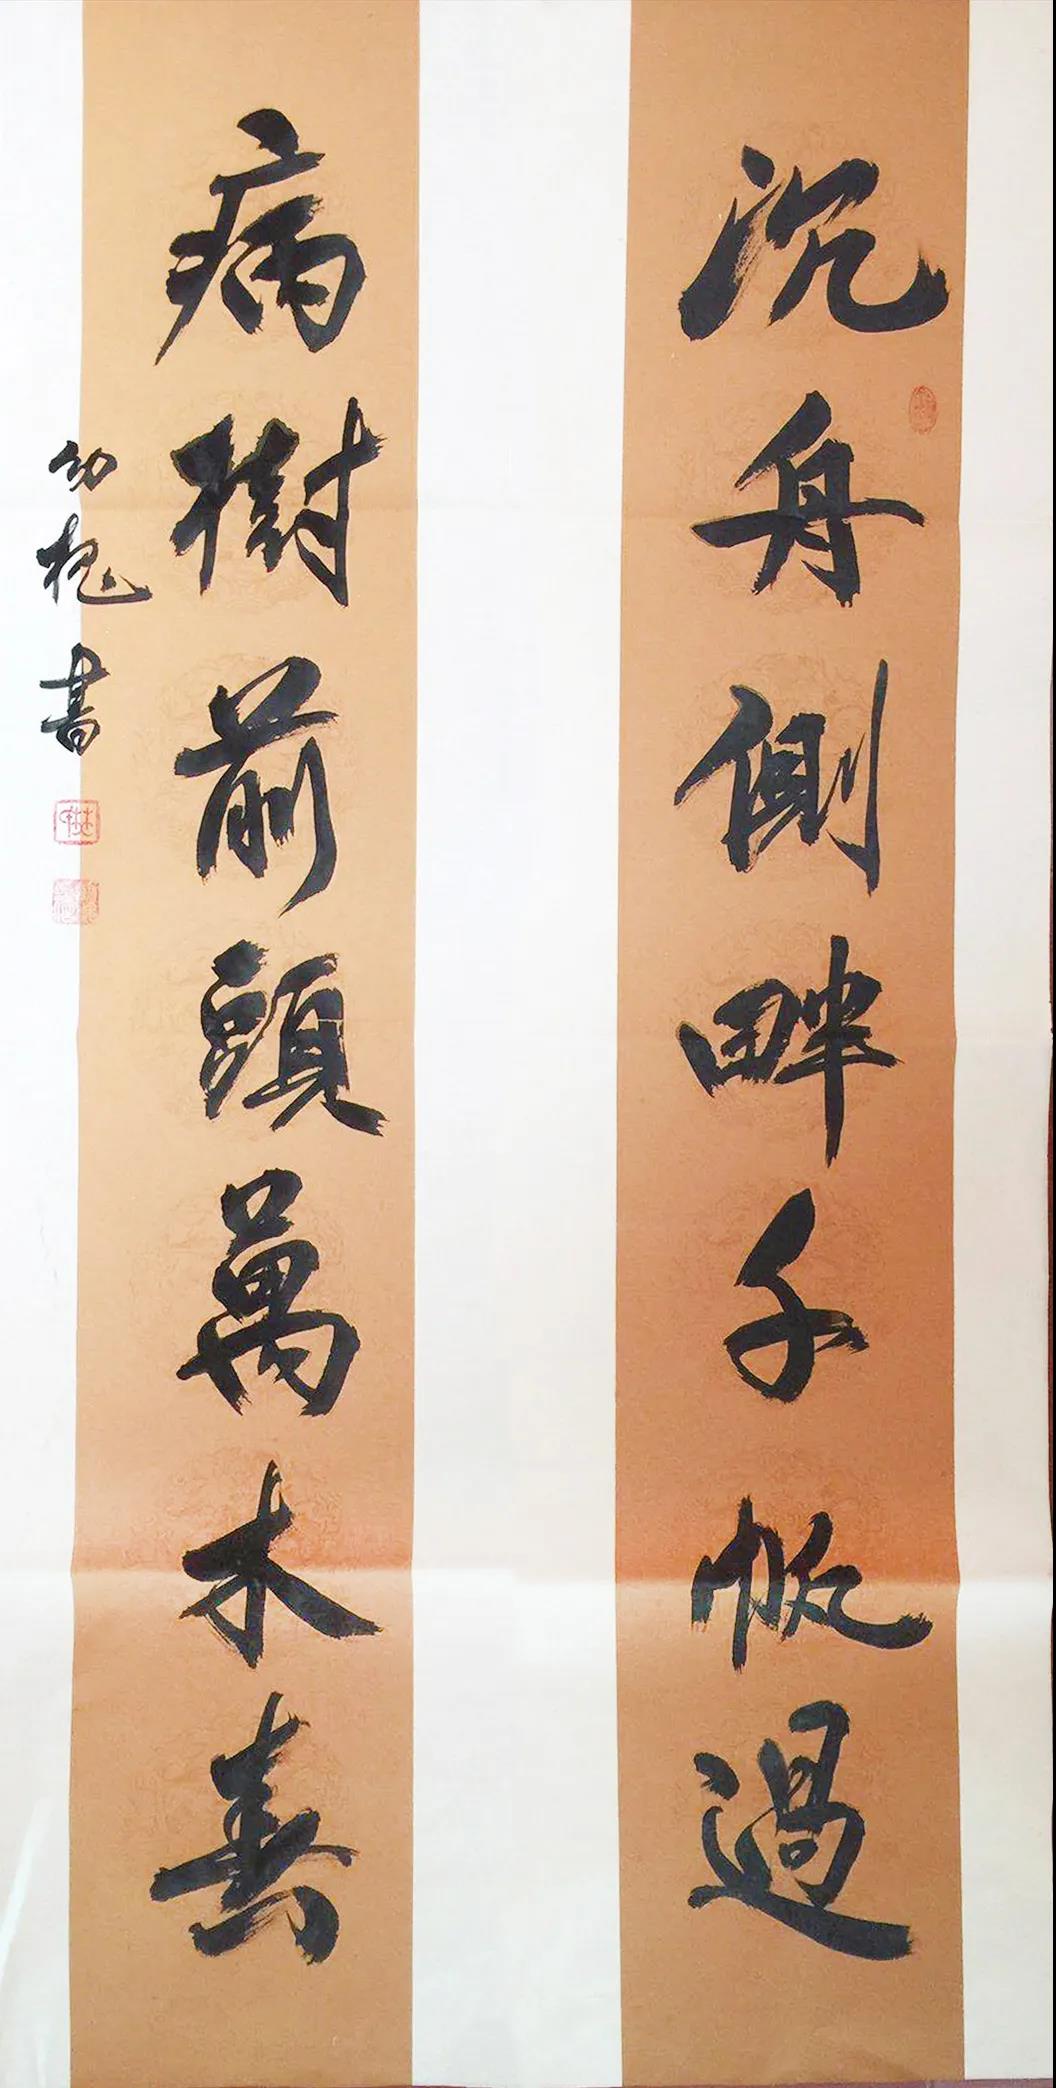 沉舟側畔千帆過
病樹前頭萬木春
幼槐書